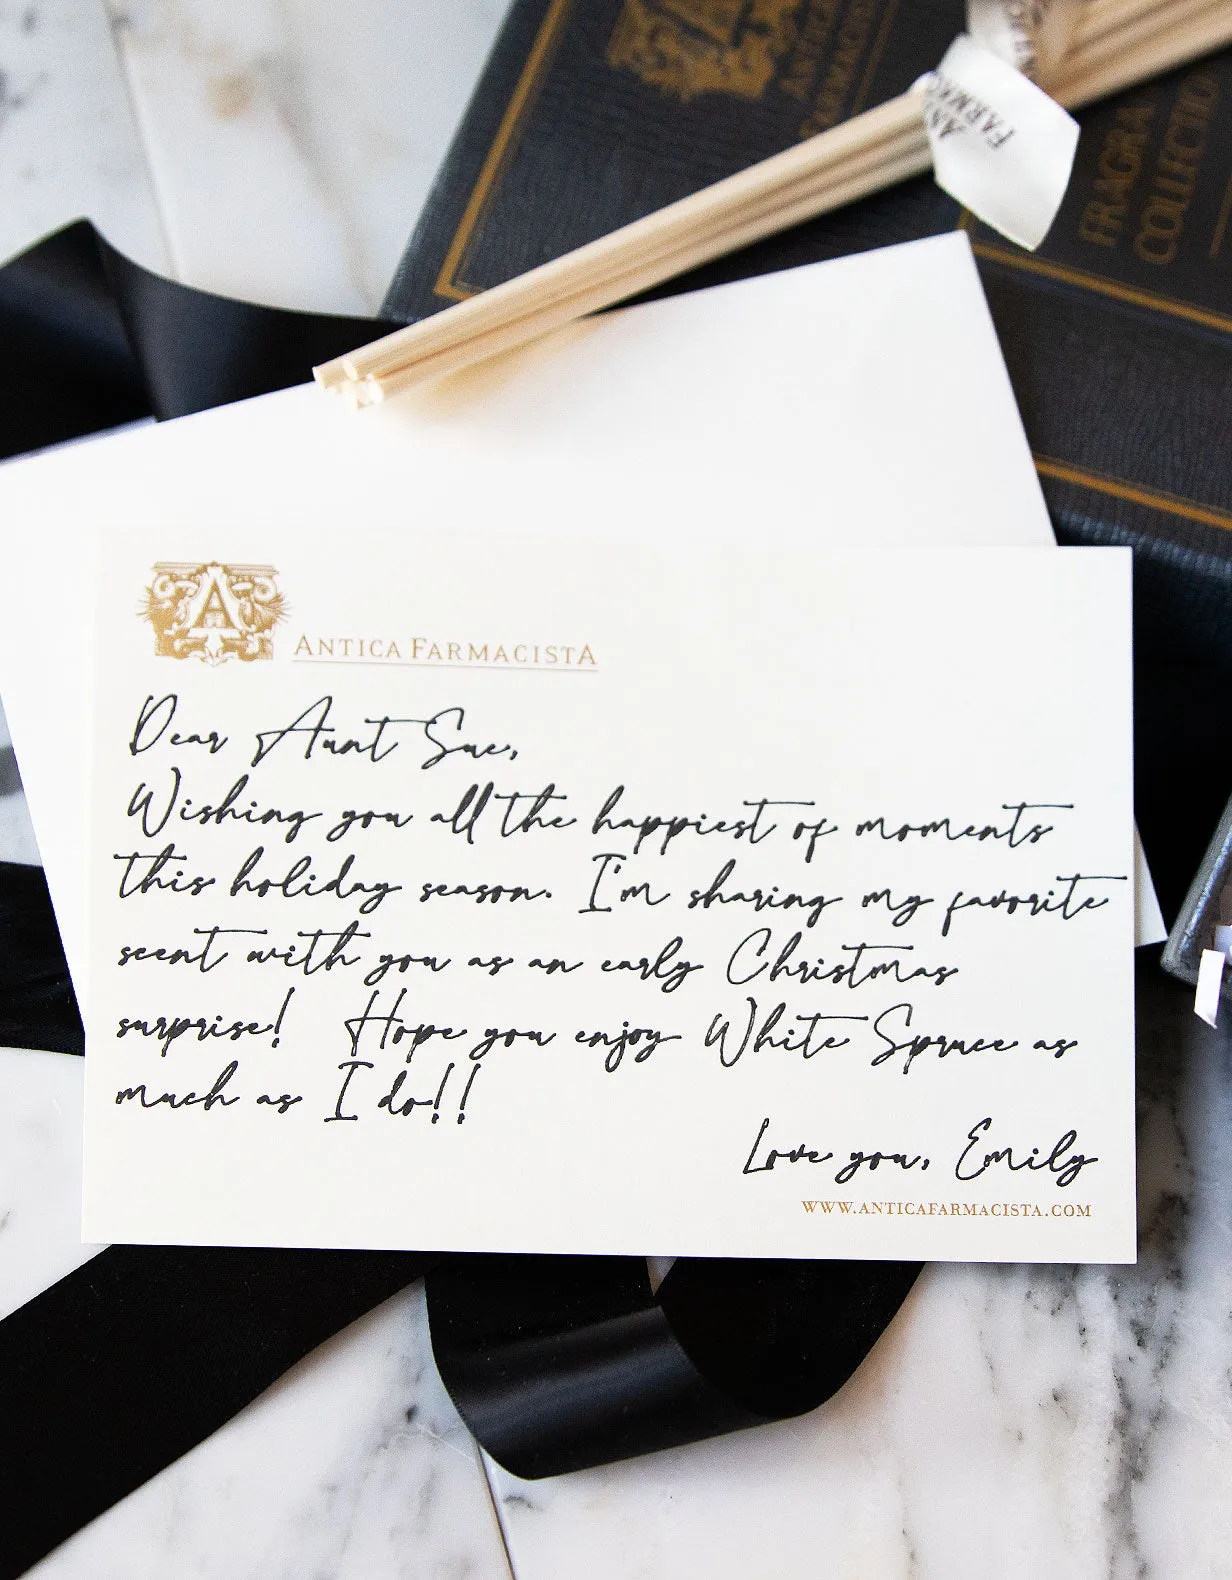 ANTICA
FARMACISTA
FRAGRA
COLLECTI
ANTICA FARMACISTA
Dear Aunt Sue,
Wishing you all the happiest of moments
this holiday season. I'm sharing my favorite
scent with you as an early Christmas
surprise! Hope you enjoy White Spruce as
much as I do!!
Love you, Emily
WWW.ANTICAFARMACISTA.COM